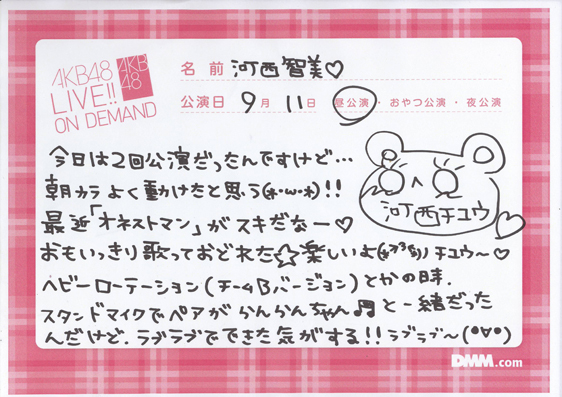 AKB48
LIVE!!
ON DEMAND
AKB
48
名前 河西智美♡
公演日 9月 11日 昼公演・おやつ公演・夜公演
今日は2回公演だったんですけど…
朝からよく動けたと思う(*・ω・*)!!
最近「オネストマン」がスキだなー♡
おもいっきり歌っておどれた☆楽しいよ チュウ〜♡
河西チュウ
ヘビーローテーション(チームBバージョン)とかの時.
スタンドマイクでペアがらんらんちゃん♬と一緒だった
んだけど.ラブラブでできた気がする!!ラブラブ〜(°∀°)
DMM.com